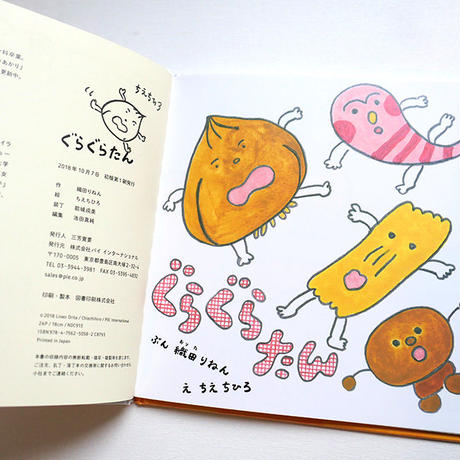 科卒業。
あかり」
更新中。
ちえちひろ
ぐらぐらたん
2018年10月7日 初版第1刷発行
作 織田りねん
絵 ちえちひろ
装丁 能城成美
編集 池田真純
発行人 三芳寛要
発行元 株式会社パイ インターナショナル
〒170-0005 東京都豊島区南大塚2-32-4
TEL 03-3944-3981 FAX 03-5395-4830
sales@pie.co.jp
印刷・製本 図書印刷株式会社
©2018 Linen Orita / Chiechihiro / PIE International
ISBN978-4-7562-5058-2 C8793
Printed in Japan
本書の収録内容の無断転載・複写・複製等を禁じます。
ご注文、乱丁・落丁本の交換等に関するお問い合わせは、
小社までご連絡ください。
ぐらぐら
たん
ぶん 織田りねん
え ちえちひろ